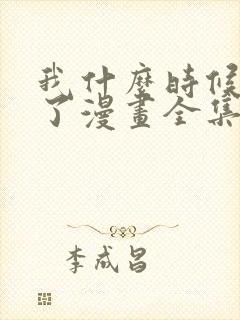 我什麼時候
了漫畫全集
李成昌